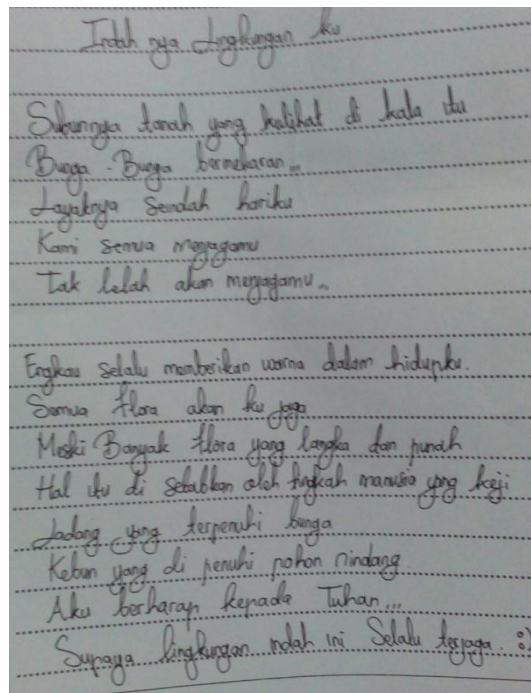 Indah nya Lingkungan ku
Suburnya tanah yang kulihat di kala itu
Bunga - Bunga bermekaran...
Layaknya Seindah hariku
Kami semua menjagamu
Tak lelah akan menjagamu...
Engkau selalu memberikan warna dalam hidupku.
Semua flora akan ku jaga
Meski Banyak flora yang langka dan punah
Hal itu di sebabkan oleh tingkah manusia yang keji
Ladang yang terpenuhi bunga
Kebun yang di penuhi pohon rindang.
Aku berharap kepada Tuhan...
Supaya lingkungan indah ini Selalu terjaga. :)